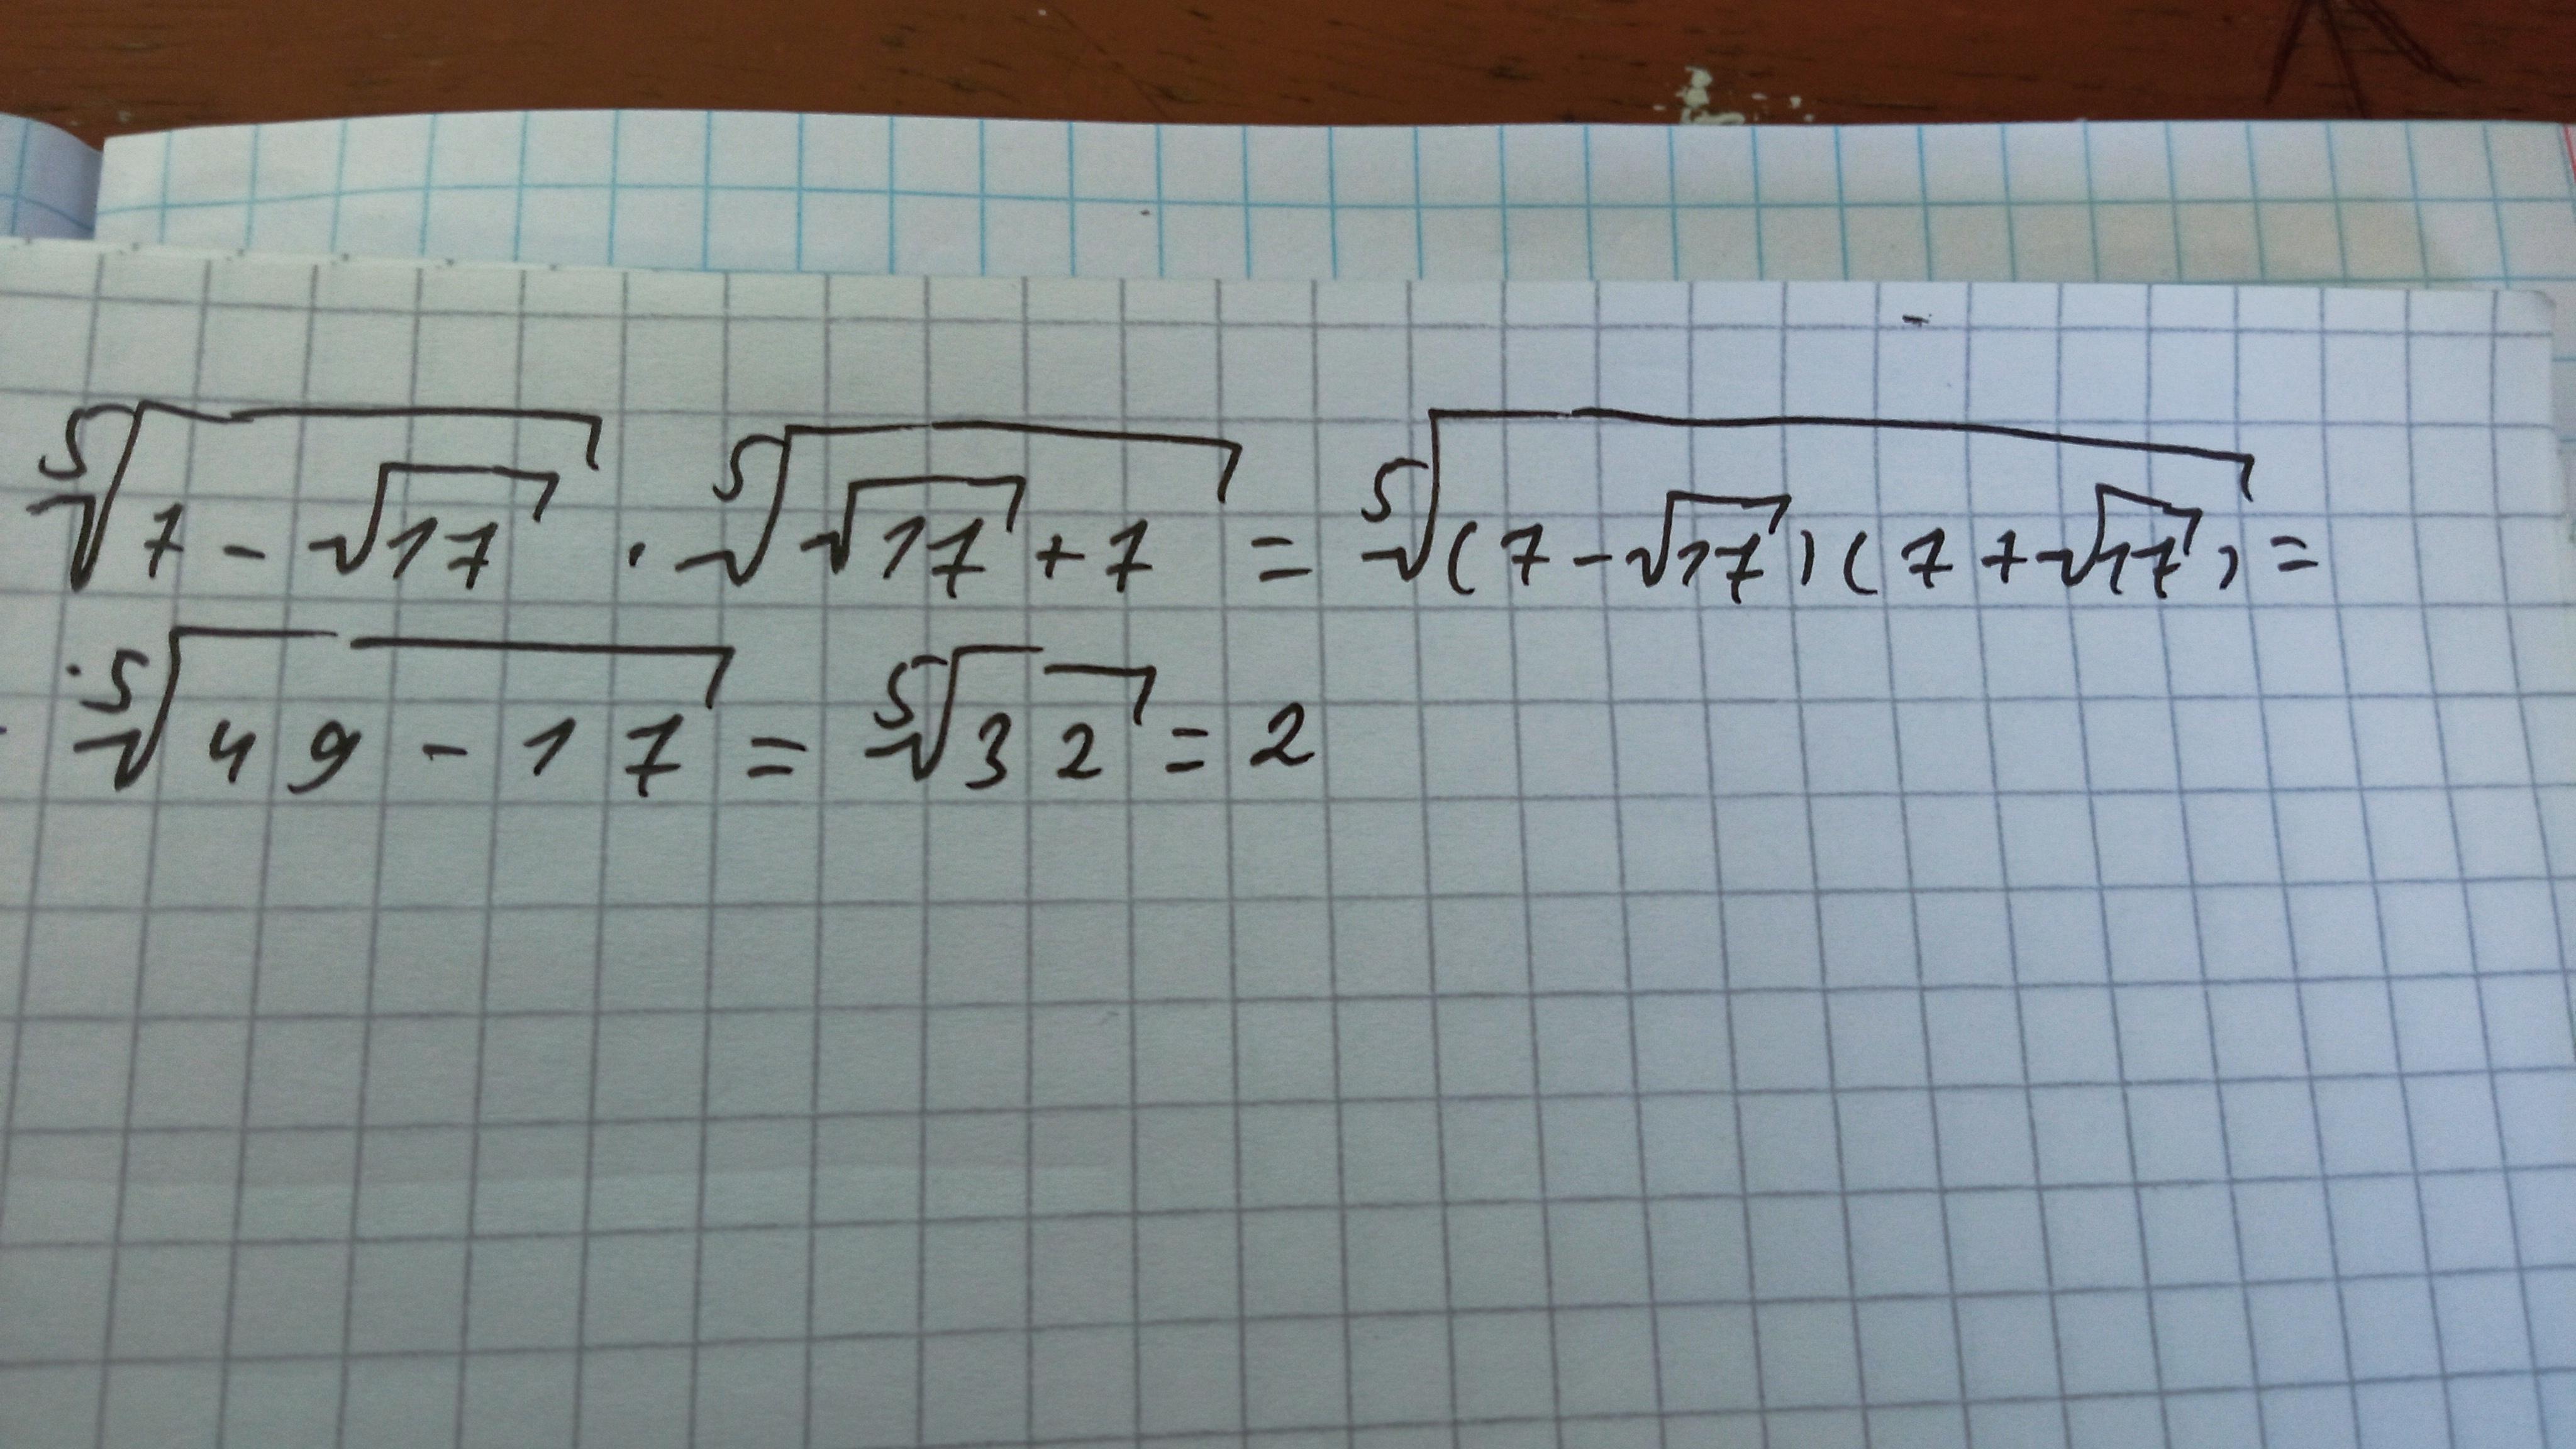 ⁵√(7 - √17) · ⁵√(√17 + 7) = ⁵√((7 - √17)(7 + √17)) =
⁵√(49 - 17) = ⁵√32 = 2